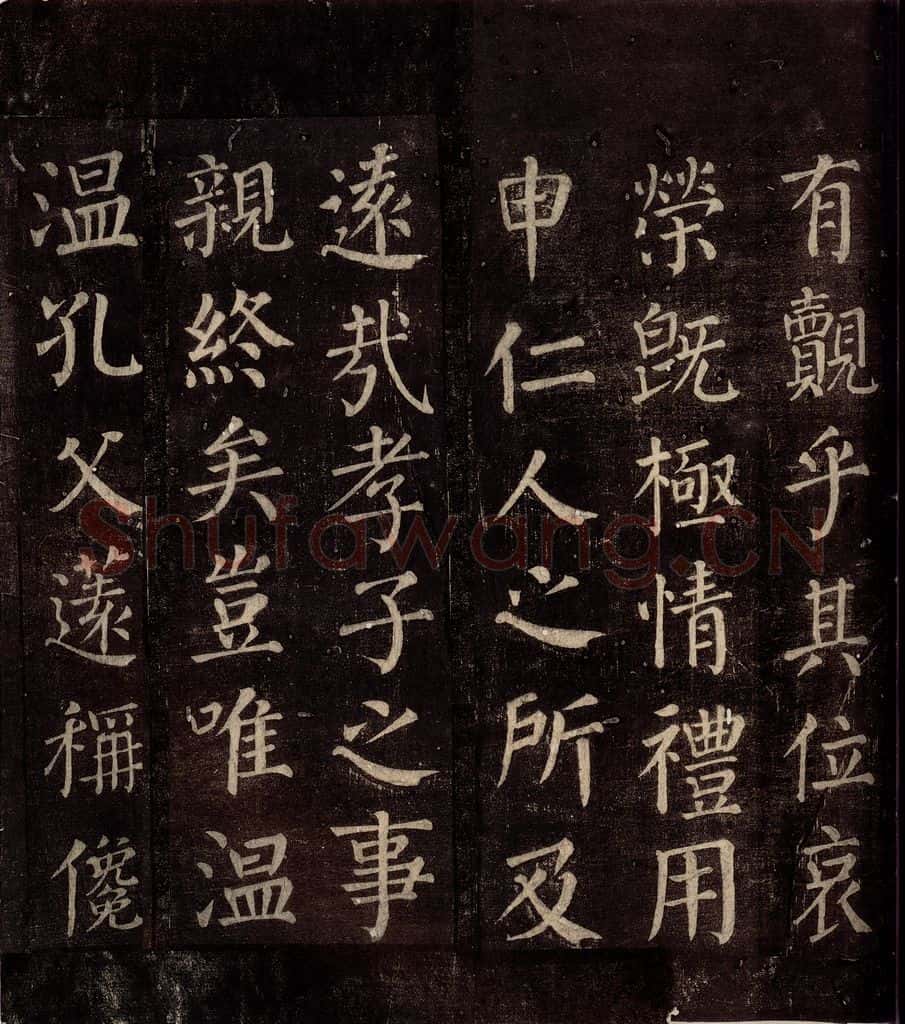 有覿乎其位哀
榮既極情禮用
申仁人之所及
遠哉孝子之事
親終矣豈唯温
温孔父稱儳